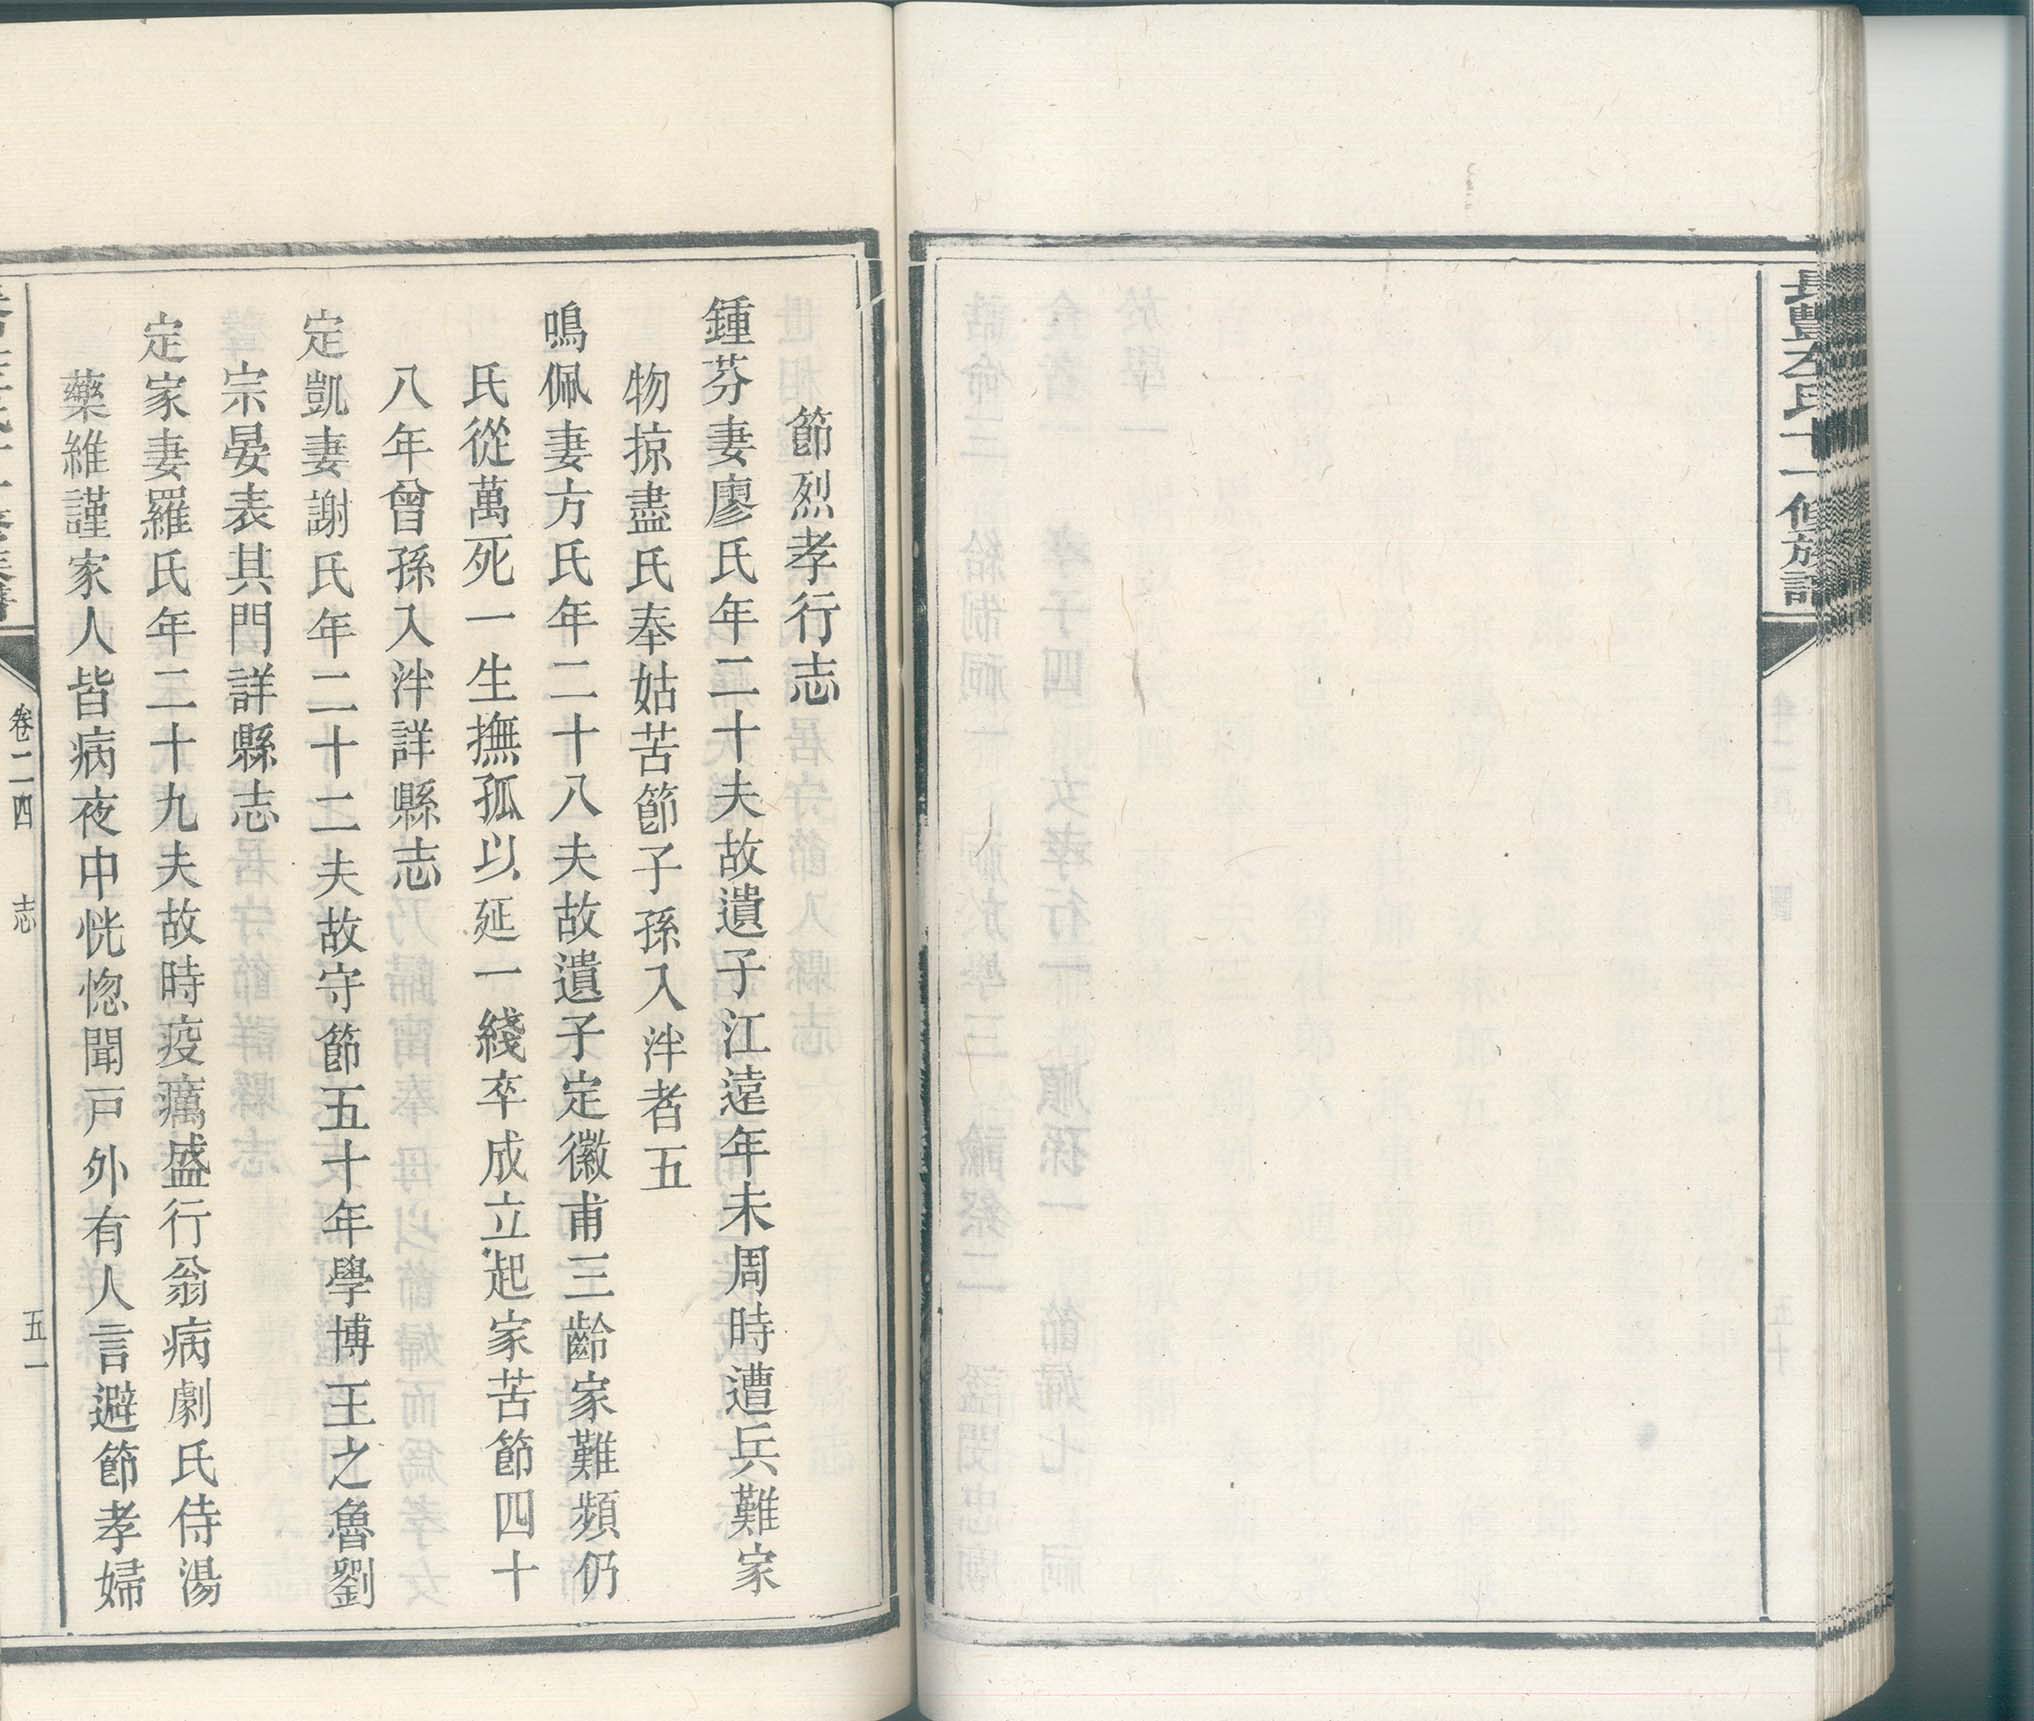 長豐左氏十一修族譜
節烈孝行志
鍾芬妻廖氏年二十夫故遺子江遠年未周時遭兵難家
物掠盡氏奉姑苦節子孫入泮者五
鳴佩妻方氏年二十八夫故遺子定徽甫三齡家難頻仍
氏從萬死一生撫孤以延一綫卒成立起家苦節四十
八年曾孫入泮詳縣志
定凱妻謝氏年二十二夫故守節五十年學博王之魯劉
宗晏表其門詳縣志
定家妻羅氏年二十九夫故時疫癘盛行翁病劇氏侍湯
藥維謹家人皆病夜中恍惚聞戸外有人言避節孝婦
卷二四 志 五一